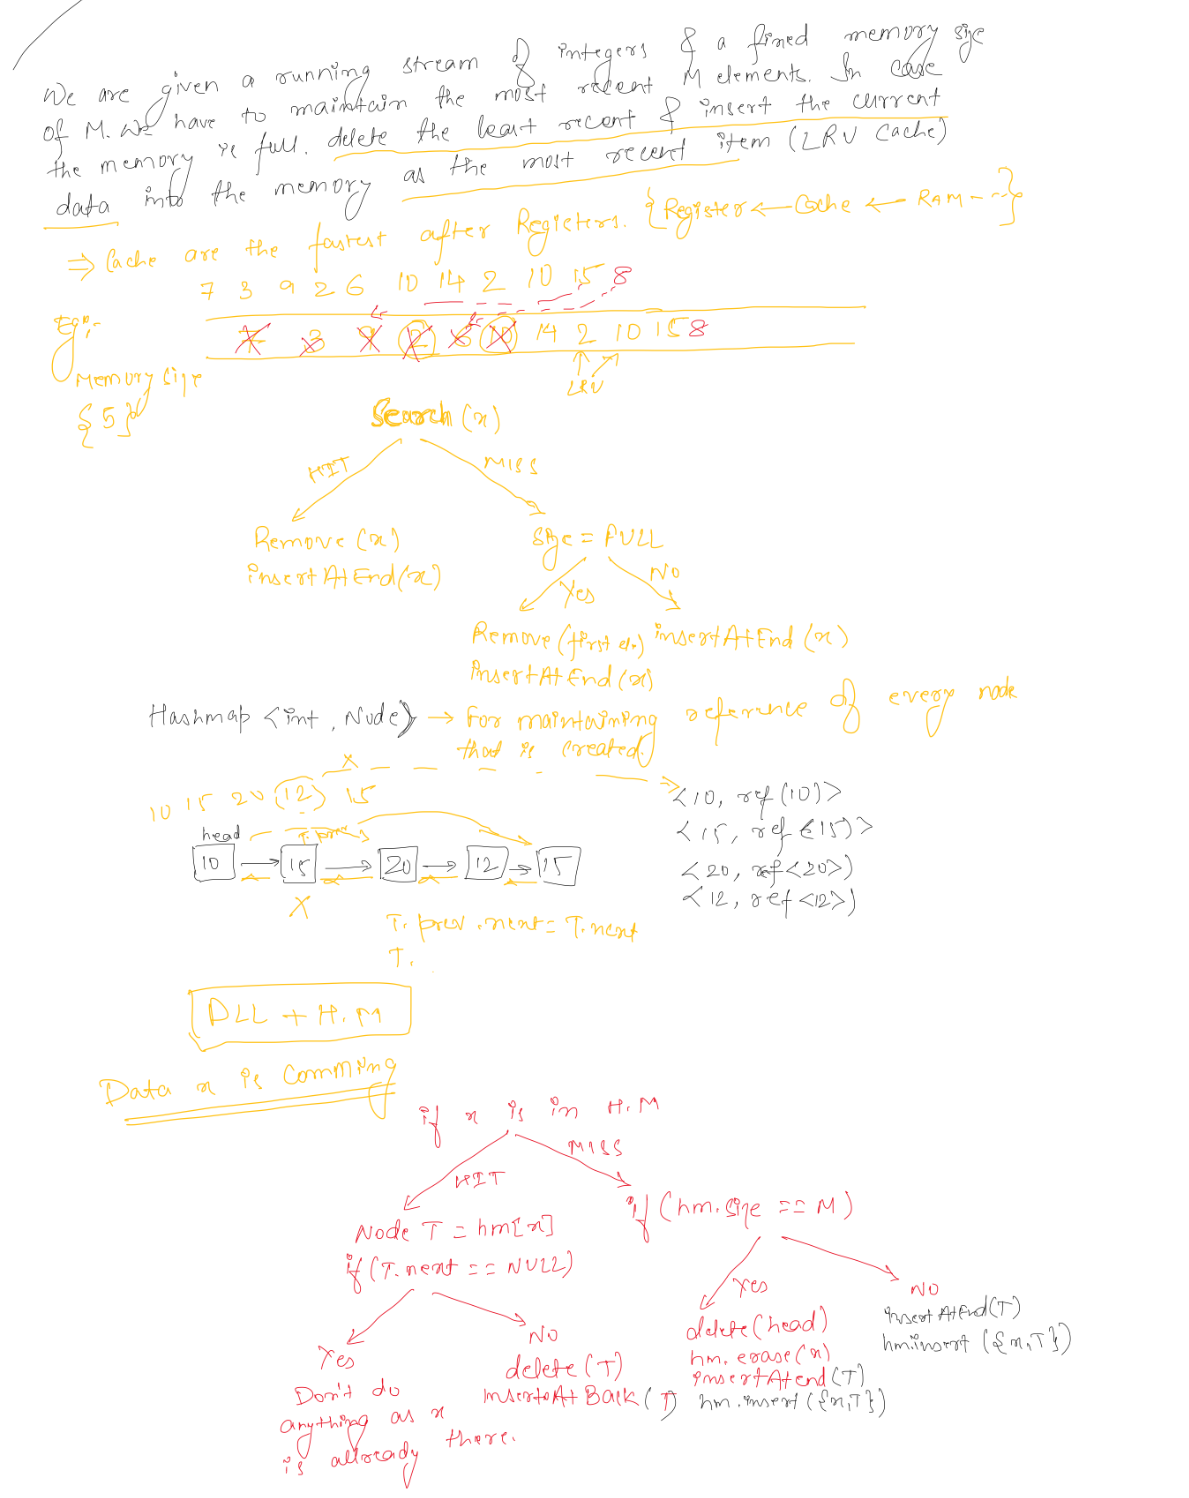 We are given a running stream of integers & a fixed memory size
of M. We have to maintain the most recent M elements. In case
the memory is full, delete the least recent & insert the current
data into the memory as the most recent item (LRU Cache)
⇒ Cache are the fastest after Registers. {Register ← Cache ← RAM - --}
7 3 9 2 6 10 14 2 10 15 8
Eg:-
7 3 9 2 6 10 14 2 10 15 8
LRU
Memory Size
{5}
Search (x)
HIT MISS
Remove (x) size = FULL
insertAtEnd(x)
Yes NO
Remove (first el.) insertAtEnd (x)
insertAtEnd (x)
Hashmap <int, Node> → For maintaining reference of every node
that is created.
X
10 15 20 (12) 15
<10, ref(10)>
<15, ref(15)>
<20, ref<20>)
<12, ref<12>)
head T.prev
10 → 15 → 20 → 12 → 15
X
T.prev.next = T.next
T.
DLL + H.M
Data x is comming
if x is in H.M
HIT MISS
Node T = hm[x] if (hm.size == M)
if (T.next == NULL)
Yes NO
Yes NO
Don't do
anything as x
is allready there.
delete (T)
insertAtBack (T)
delete (head)
hm.erase(x)
insertAtend (T)
hm.insert ({x,T})
insertAtEnd(T)
hm.insert ({x,T})